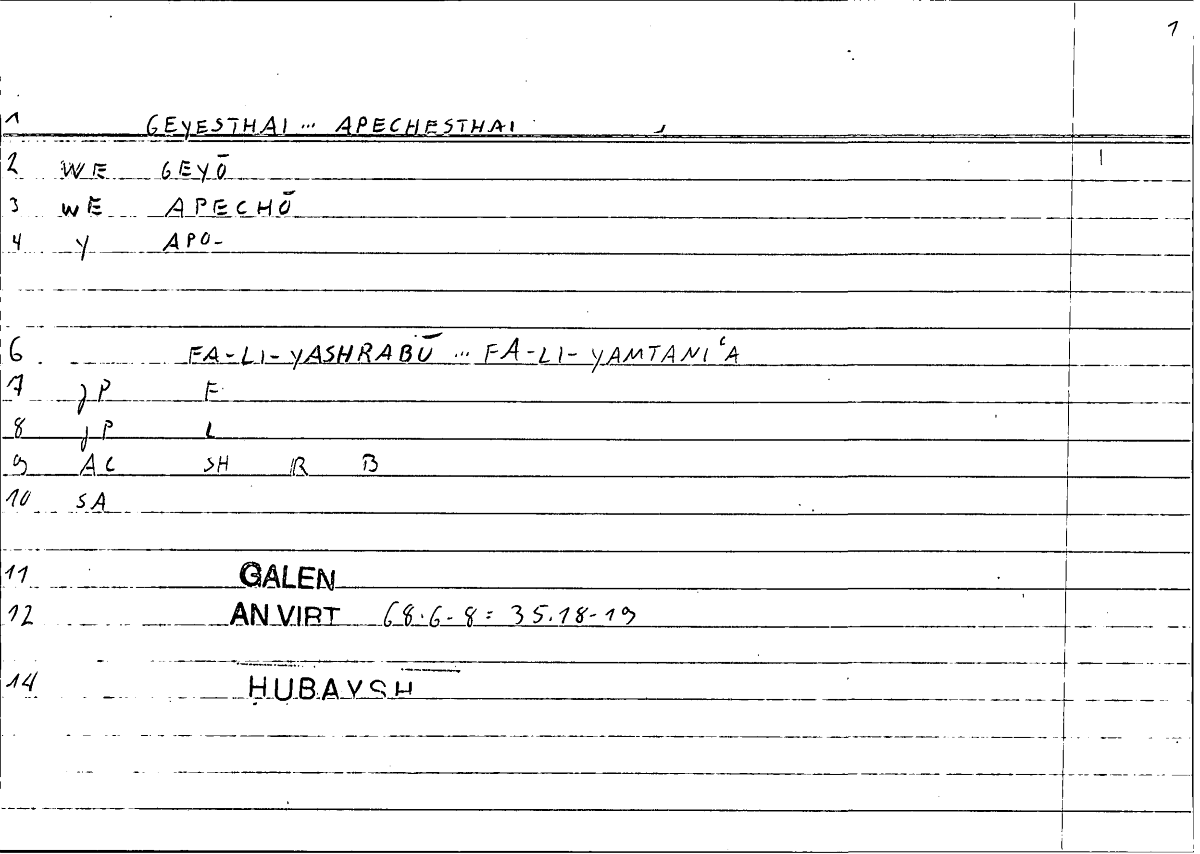 1
1 GEYESTHAI ... APECHESTHAI
2 WE GEYŌ
3 WE APECHŌ
4 Y APO-
6 FA-LI-YASHRABŪ ... FA-LI-YAMTANIʿA
7 JP F
8 JP L
9 AC SH R B
10 SA
11 GALEN
12 AN VIRT 68.6-8 = 35.18-19
14 ḤUBAYSH